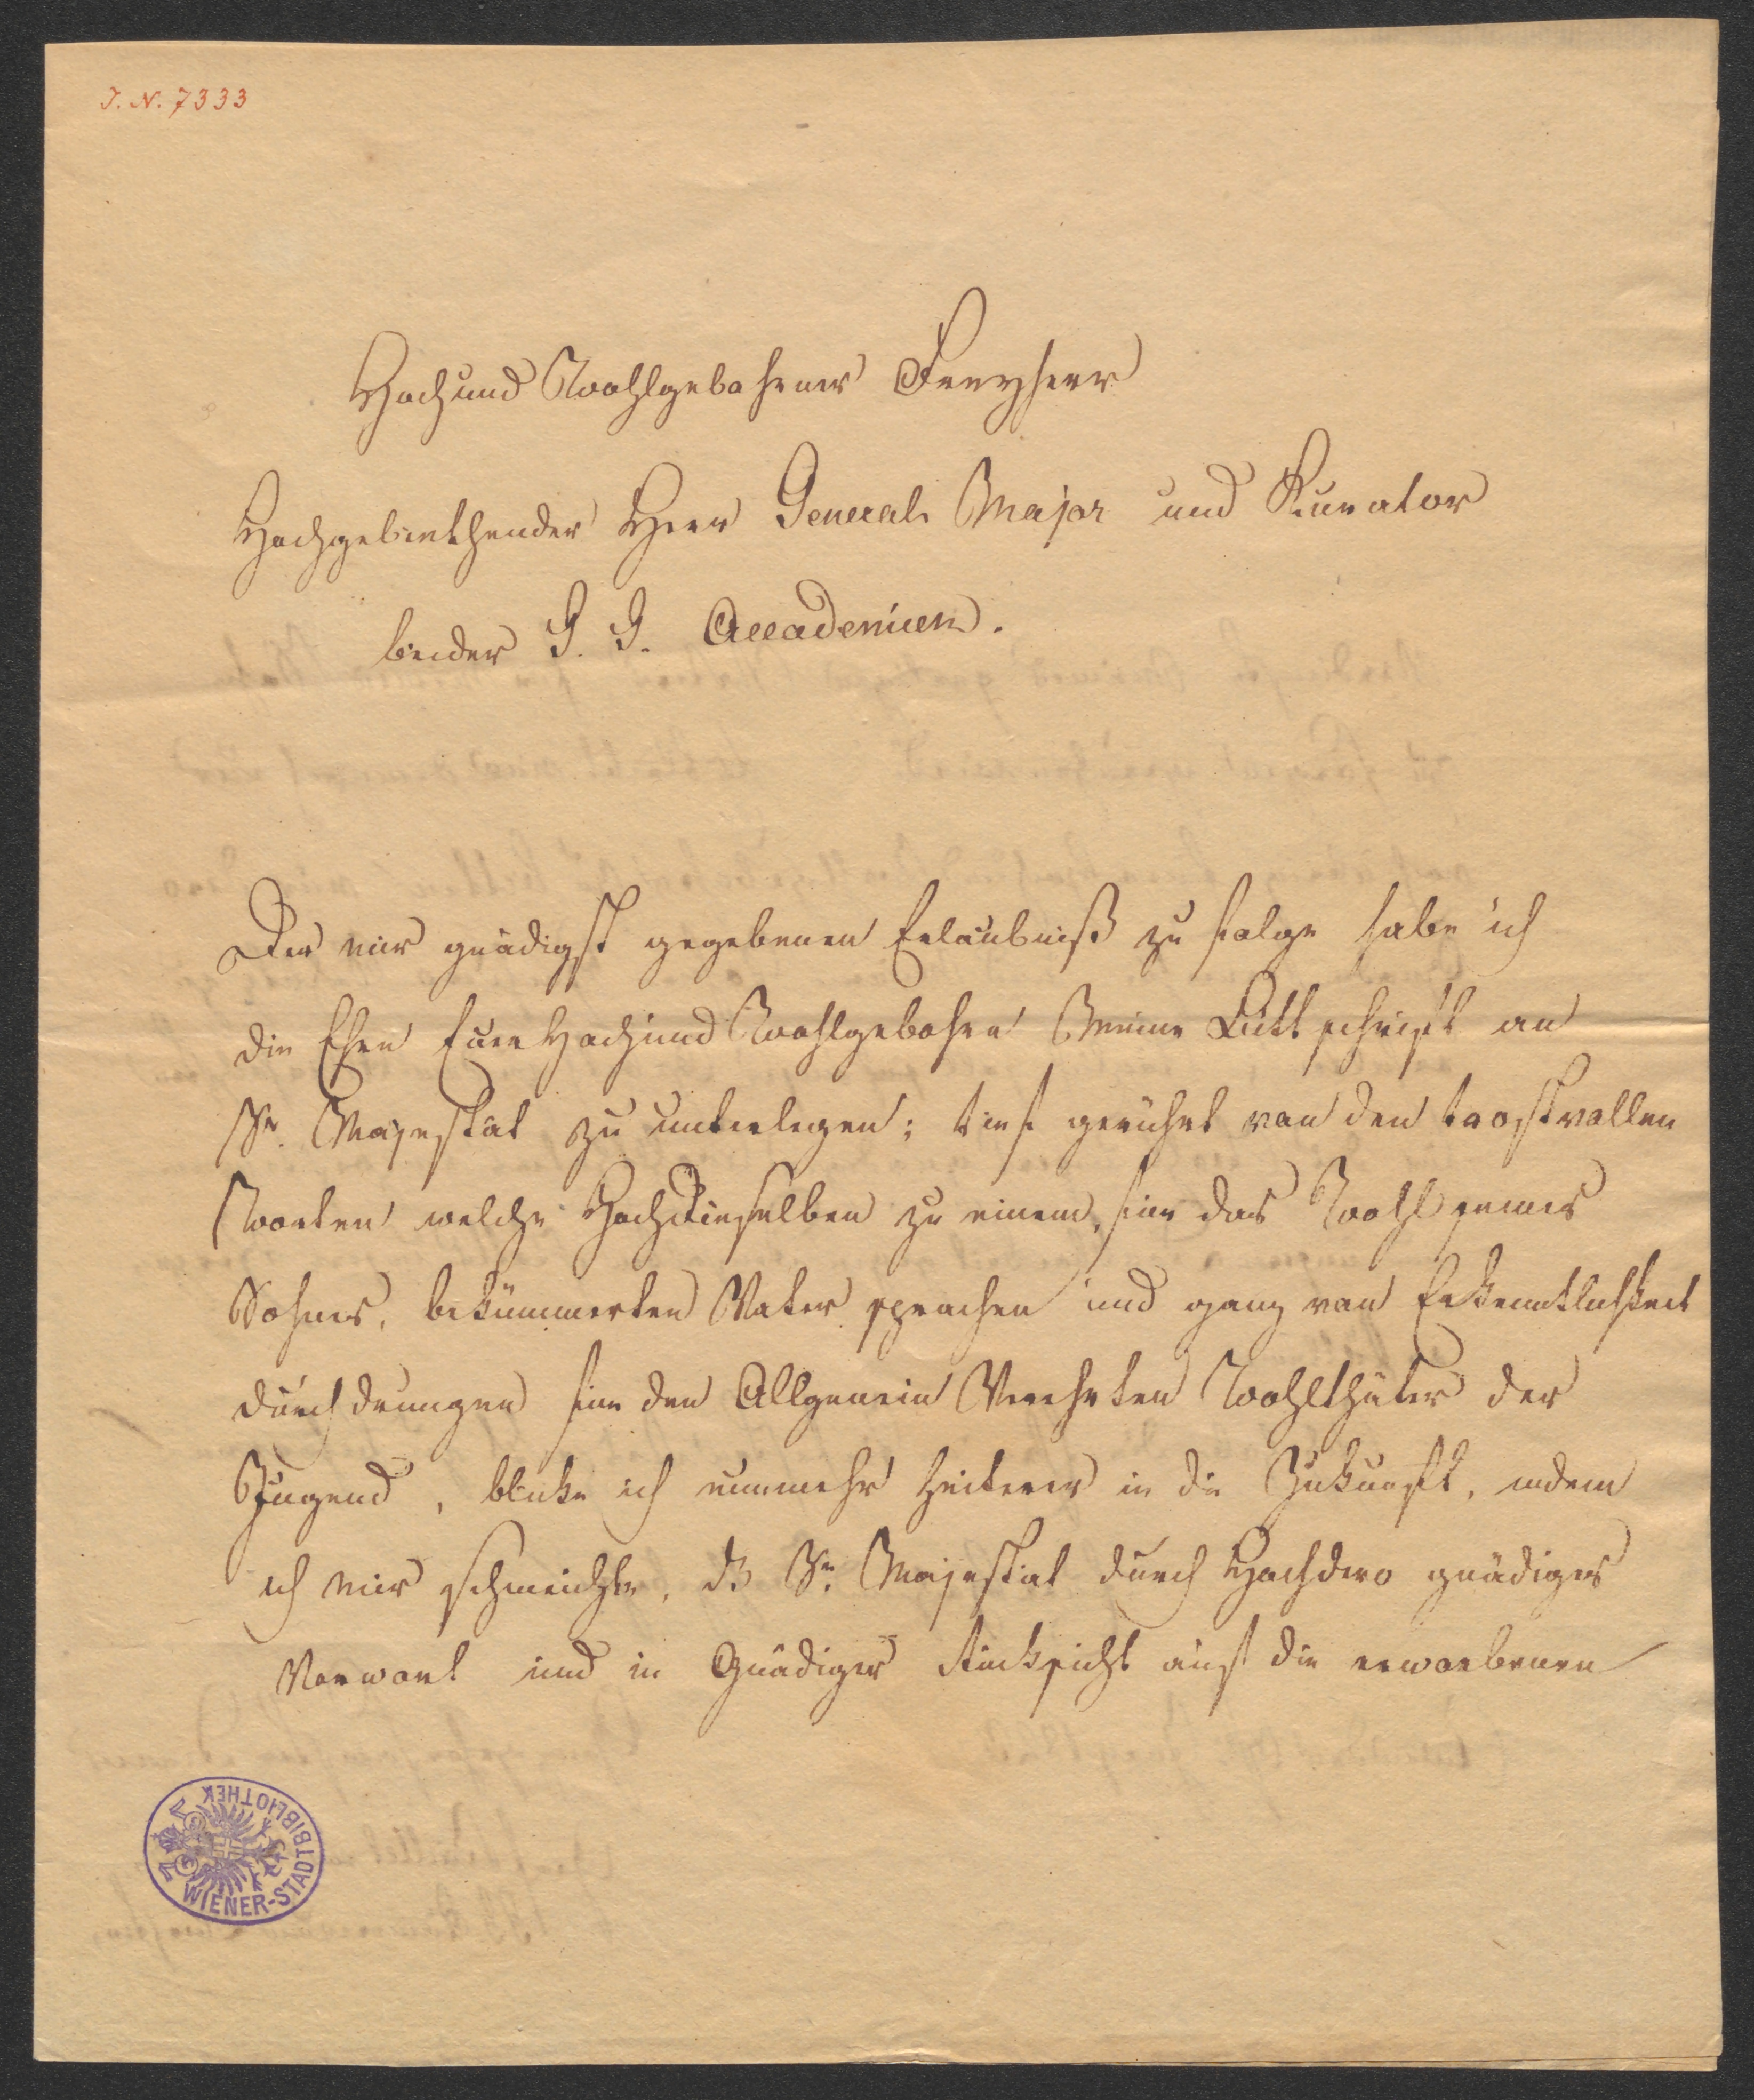 J. N. 7333
Hoch und Wohlgebohrner Freyherr
Hochgebiethender Herr General Major und Kurator
beider J. J. Accademien.
Der mir gnädigst gegebenen Erlaubniß zu folge habe ich
die Ehre Eure Hoch und Wohlgebohrn Meine Bittschrift an
Sr. Majestät zu unterlegen; tief gerührt von den trostvollen
Worten welche Hochdieselben zu einem, für das Wohl seines
Sohnes, bekümmerten Vater sprachen und ganz von Erkenntlichkeit
durchdrungen für den Allgemein Verehrten Wohlthäter der
Jugend, blicke ich nunmehr heiterer in die Zukunft, indem
ich mir schmeichle, dß Sr. Majestät durch Hochdero gnädiges
Vorwort und in Gnädiger Rücksicht auf die erworbenen
WIENER-STADTBIBLIOTHEK